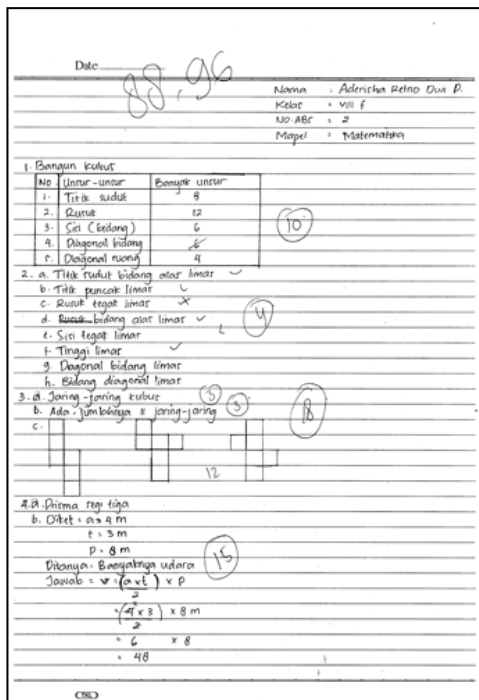 Date
88,96
Nama : Aderisha Retno Dwi P.
Kelas : VIII f
NO.ABS : 2
Mapel : Matematika
1. Bangun kubus
No Unsur-unsur Banyak unsur
1. Titik sudut 8
2. Rusuk 12
3. Sisi (bidang) 6
4. Diagonal bidang
5. Diagonal ruang 4
10
2. a. Titik sudut bidang alas limas
b. Titik puncak limas
c. Rusuk tegak limas
d. bidang alas limas
e. Sisi tegak limas
f. Tinggi limas
g. Dagonal bidang limas
h. Bidang diagonal limas
4
3. a. Jaring-jaring kubus 3
b. Ada, jumlahnya jaring-jaring 3
c.
12
18
4. a. Prisma segi tiga
b. Diket : a = 4 m
t = 3 m
P = 8 m
Ditanya : Banyaknya udara
15
Jawab = v = (a x t) x P
2
= (4 x 3) x 8 m
2
= 6 x 8
= 48